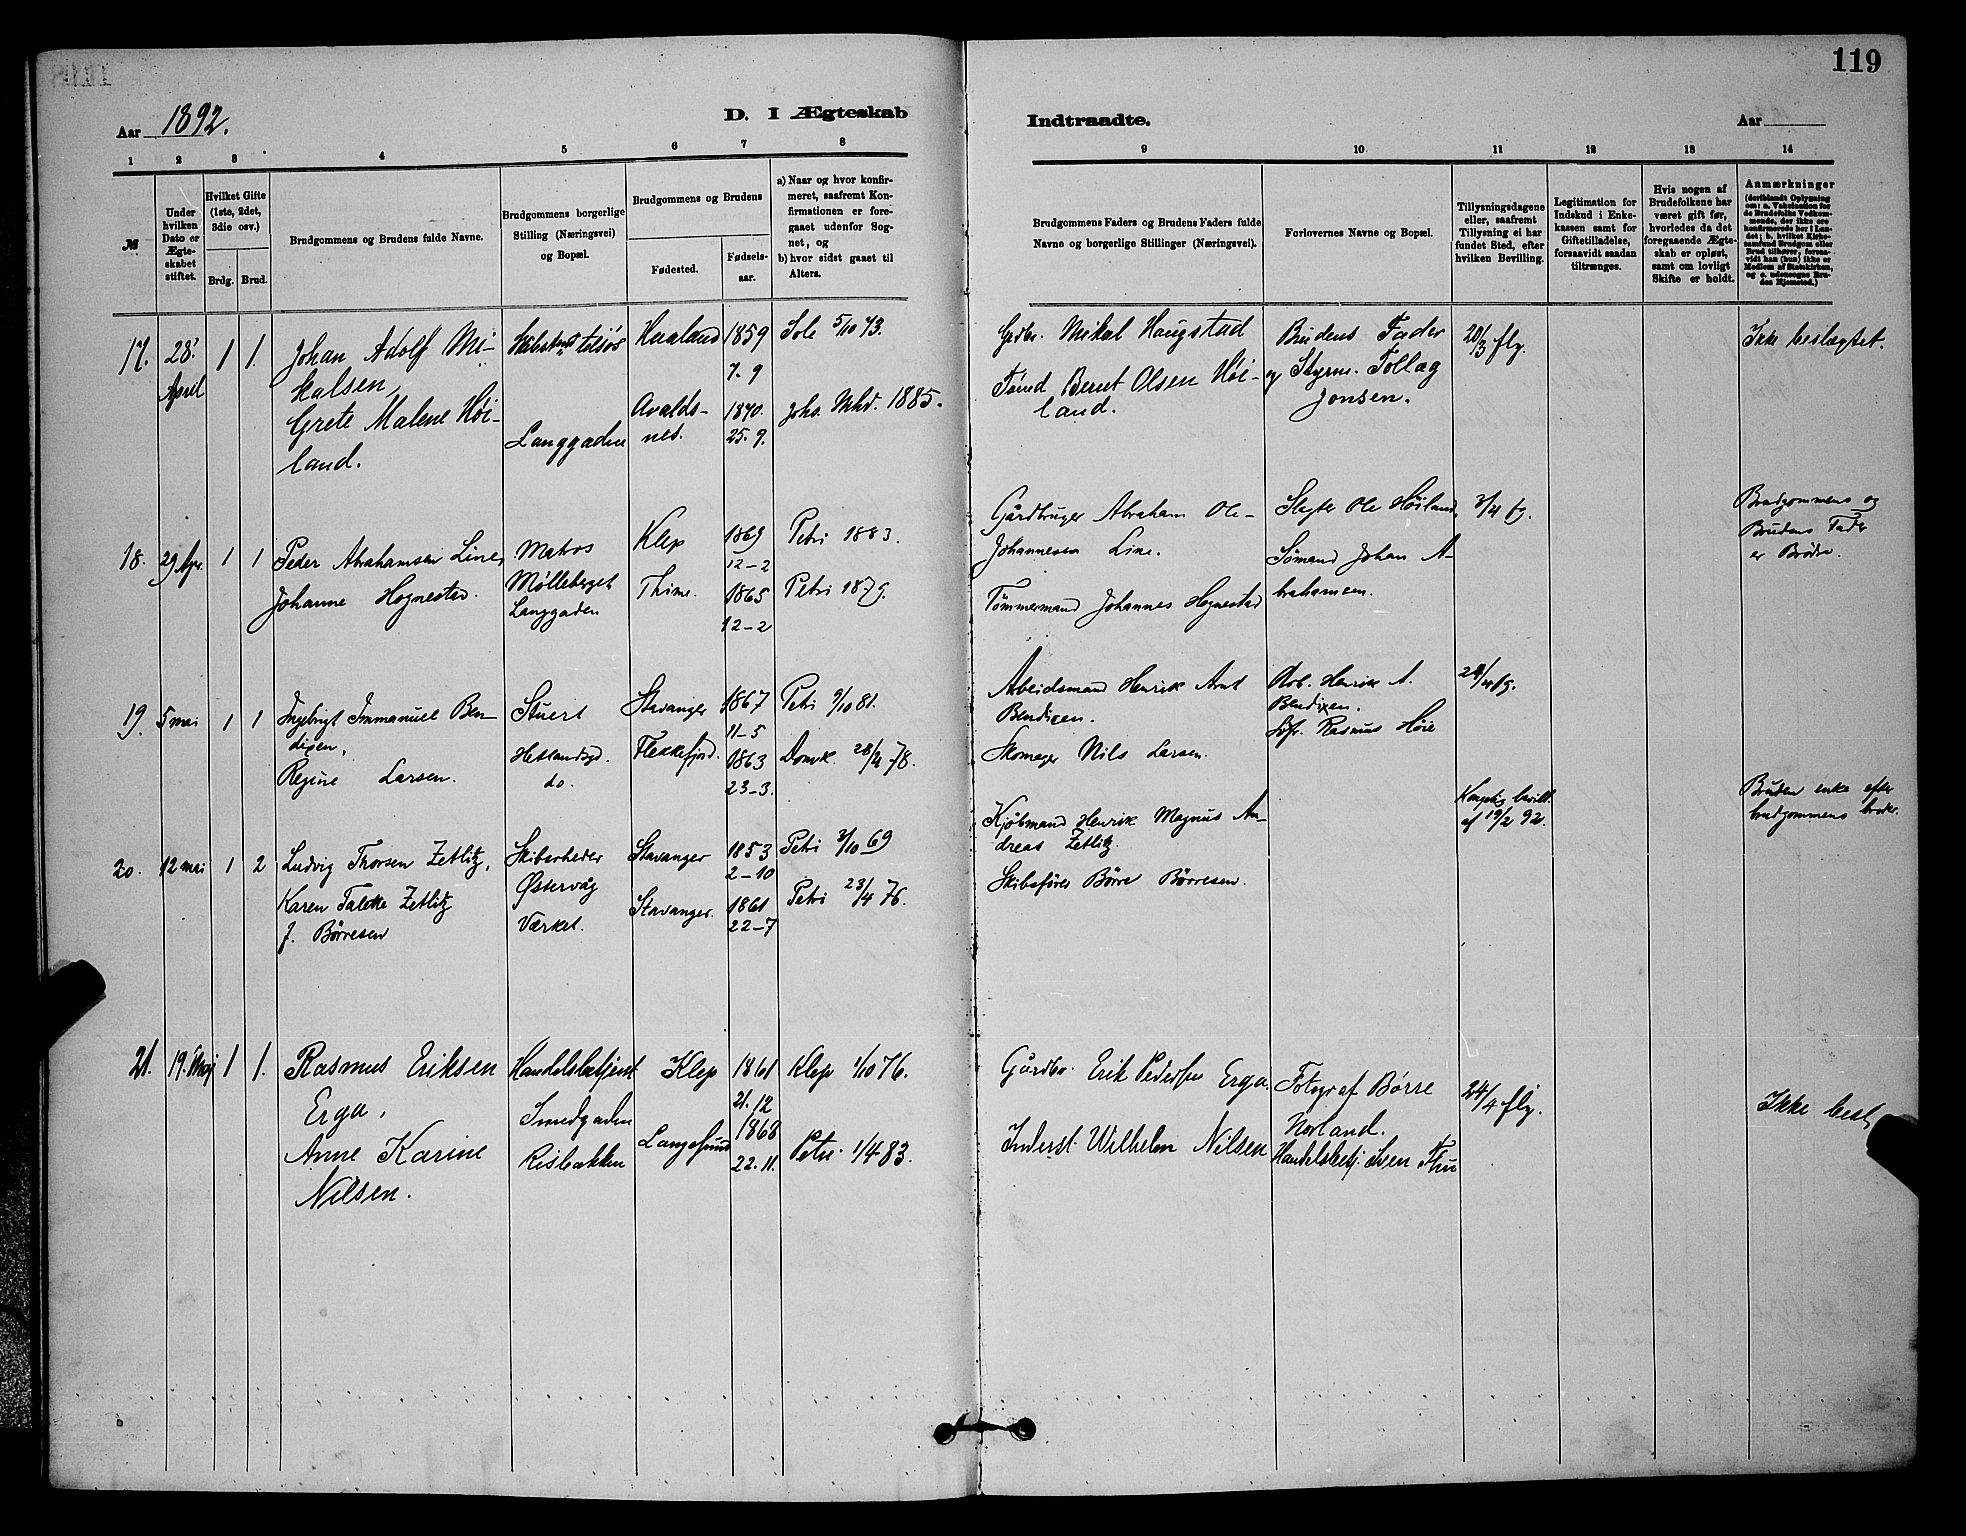 119
Aar 1892.
D. I Ægteskab
Indtraadte.
Aar
1 2 3 4 5 6 7 8 9 10 11 12 13 14
№
Under
hvilken
Dato er
Ægte-
skabet
stiftet.
Hvilket Gifte
(1ste, 2det,
3die osv.)
Brdg. Brud.
Brudgommens og Brudens fulde Navne.
Brudgommens borgerlige
Stilling (Næringsvei)
og Bopæl.
Brudgommens og Brudens
Fødested.
Fødsels-
aar.
a) Naar og hvor konfir-
meret, saafremt Kon-
firmationen er fore-
gaaet udenfor Sog-
net, og
b) hvor sidst gaaet til
Alters.
Brudgommens Faders og Brudens Faders fulde
Navne og borgerlige Stillinger (Næringsvei).
Forlovernes Navne og Bopæl.
Tillysningsdagene
eller, saafremt
Tillysning ei har
fundet Sted, efter
hvilken Bevilling.
Legitimation for
Indskud i Enke-
kassen samt for
Giftetilladelse,
forsaavidt saadan
tiltrænges.
Hvis nogen af
Brudefolkene har
været gift før,
hvorledes da det
foregaaende Ægte-
skab er opløst,
samt om lovligt
Skifte er holdt.
Anmærkninger
(deriblandt Oplysning
om: a. Vaksination for
de Brudefolks Vedkom-
mende, der ikke ere
konfirmerede her i Lan-
det; b. hvilket Kirke-
samfund Brudgom eller
Brud tilhører, forsaa-
vidt han (hun) ikke er
Medlem af Statskirken,
og c. udensogns Bru-
des Hjemsted.)
17.
28'
April
1
1.
Johan Adolf Mi-
kalsen,
Grete Malene Høi-
land.
tilsøs
Langgaden
Haaland
Avalds-
nes.
1859
7. 9
1870.
25. 9.
Sole 5/10 73.
Joho. Mhd. 1885.
Grdbr. Mikal Haugstad
Berut Olsen Høi-
land.
Brudens Fader
og Styrm. Tollag
Jonsen.
20/3 flg.
Ikke beslægtet.
18.
29 Apr.
1
1
Peder Abrahamsen Line,
Johanne Hognestad.
Matros
Mølleberget
Langgaden
Klep
Thime.
1869
12-2
1865
12-2
Petri 1883.
Petri 1879.
Gårdbruger Abraham Ole-
Johannesen Line.
Tømmermand Johannes Hognestad
Slagter Ole Høiland,
Sømand Johan A-
brahamsen.
3/4 fg.
Brudgommens og
Brudens Fader
er Brødre.
19.
5 mai
1
1
Ingebrigt Immanuel Ben-
dixen,
Regine Larsen.
Stuert
Hetlandsgd.
do.
Stavanger
Flekkefjord.
1867
11-5
1863
23-3.
Petri 9/10 81.
Domk. 28/4 78.
Arbeidsmand Henrik Arnt
Bendixen.
Skomager Nils Larsen.
Arb. Henrik A.
Bendixen.
Rasmus Høie
24/4 fg.
20.
12 mai
1
2
Ludvig Thorsen Zetlitz,
Karen Talette Zetlitz
f. Børresen
Skibsrheder
Østervåg
Værket.
Stavanger
Stavanger.
1853
2-10
1861
22-7
Petri 3/10 69
Petri 23/4 76.
Kjøbmand Henrik Magnus An-
dreas Zetlitz.
Skibsfører Børre Børresen.
Kongelig bevill.
af 19/2 92.
Bruden enke efter
brudgommens broder.
21.
19. Maj
1
1.
Rasmus Eriksen
Erga,
Anne Karine
Nilsen.
Handelsbetjent
Smedgaden
Risbakken
Klep
Langesund
1861
21. 12
1868
22. 11.
Klep 1/10 76.
Petri 1/4 83.
Gårdbr. Erik Pedersen Erga.
Inderst Wilhelm Nilsen
Fotograf Børre
Norland.
Handelsbetj. Sven Thu
24/4 flg.
Ikke besl.